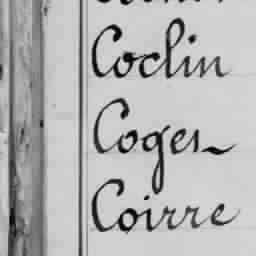 Coclin
Coges
Coirre